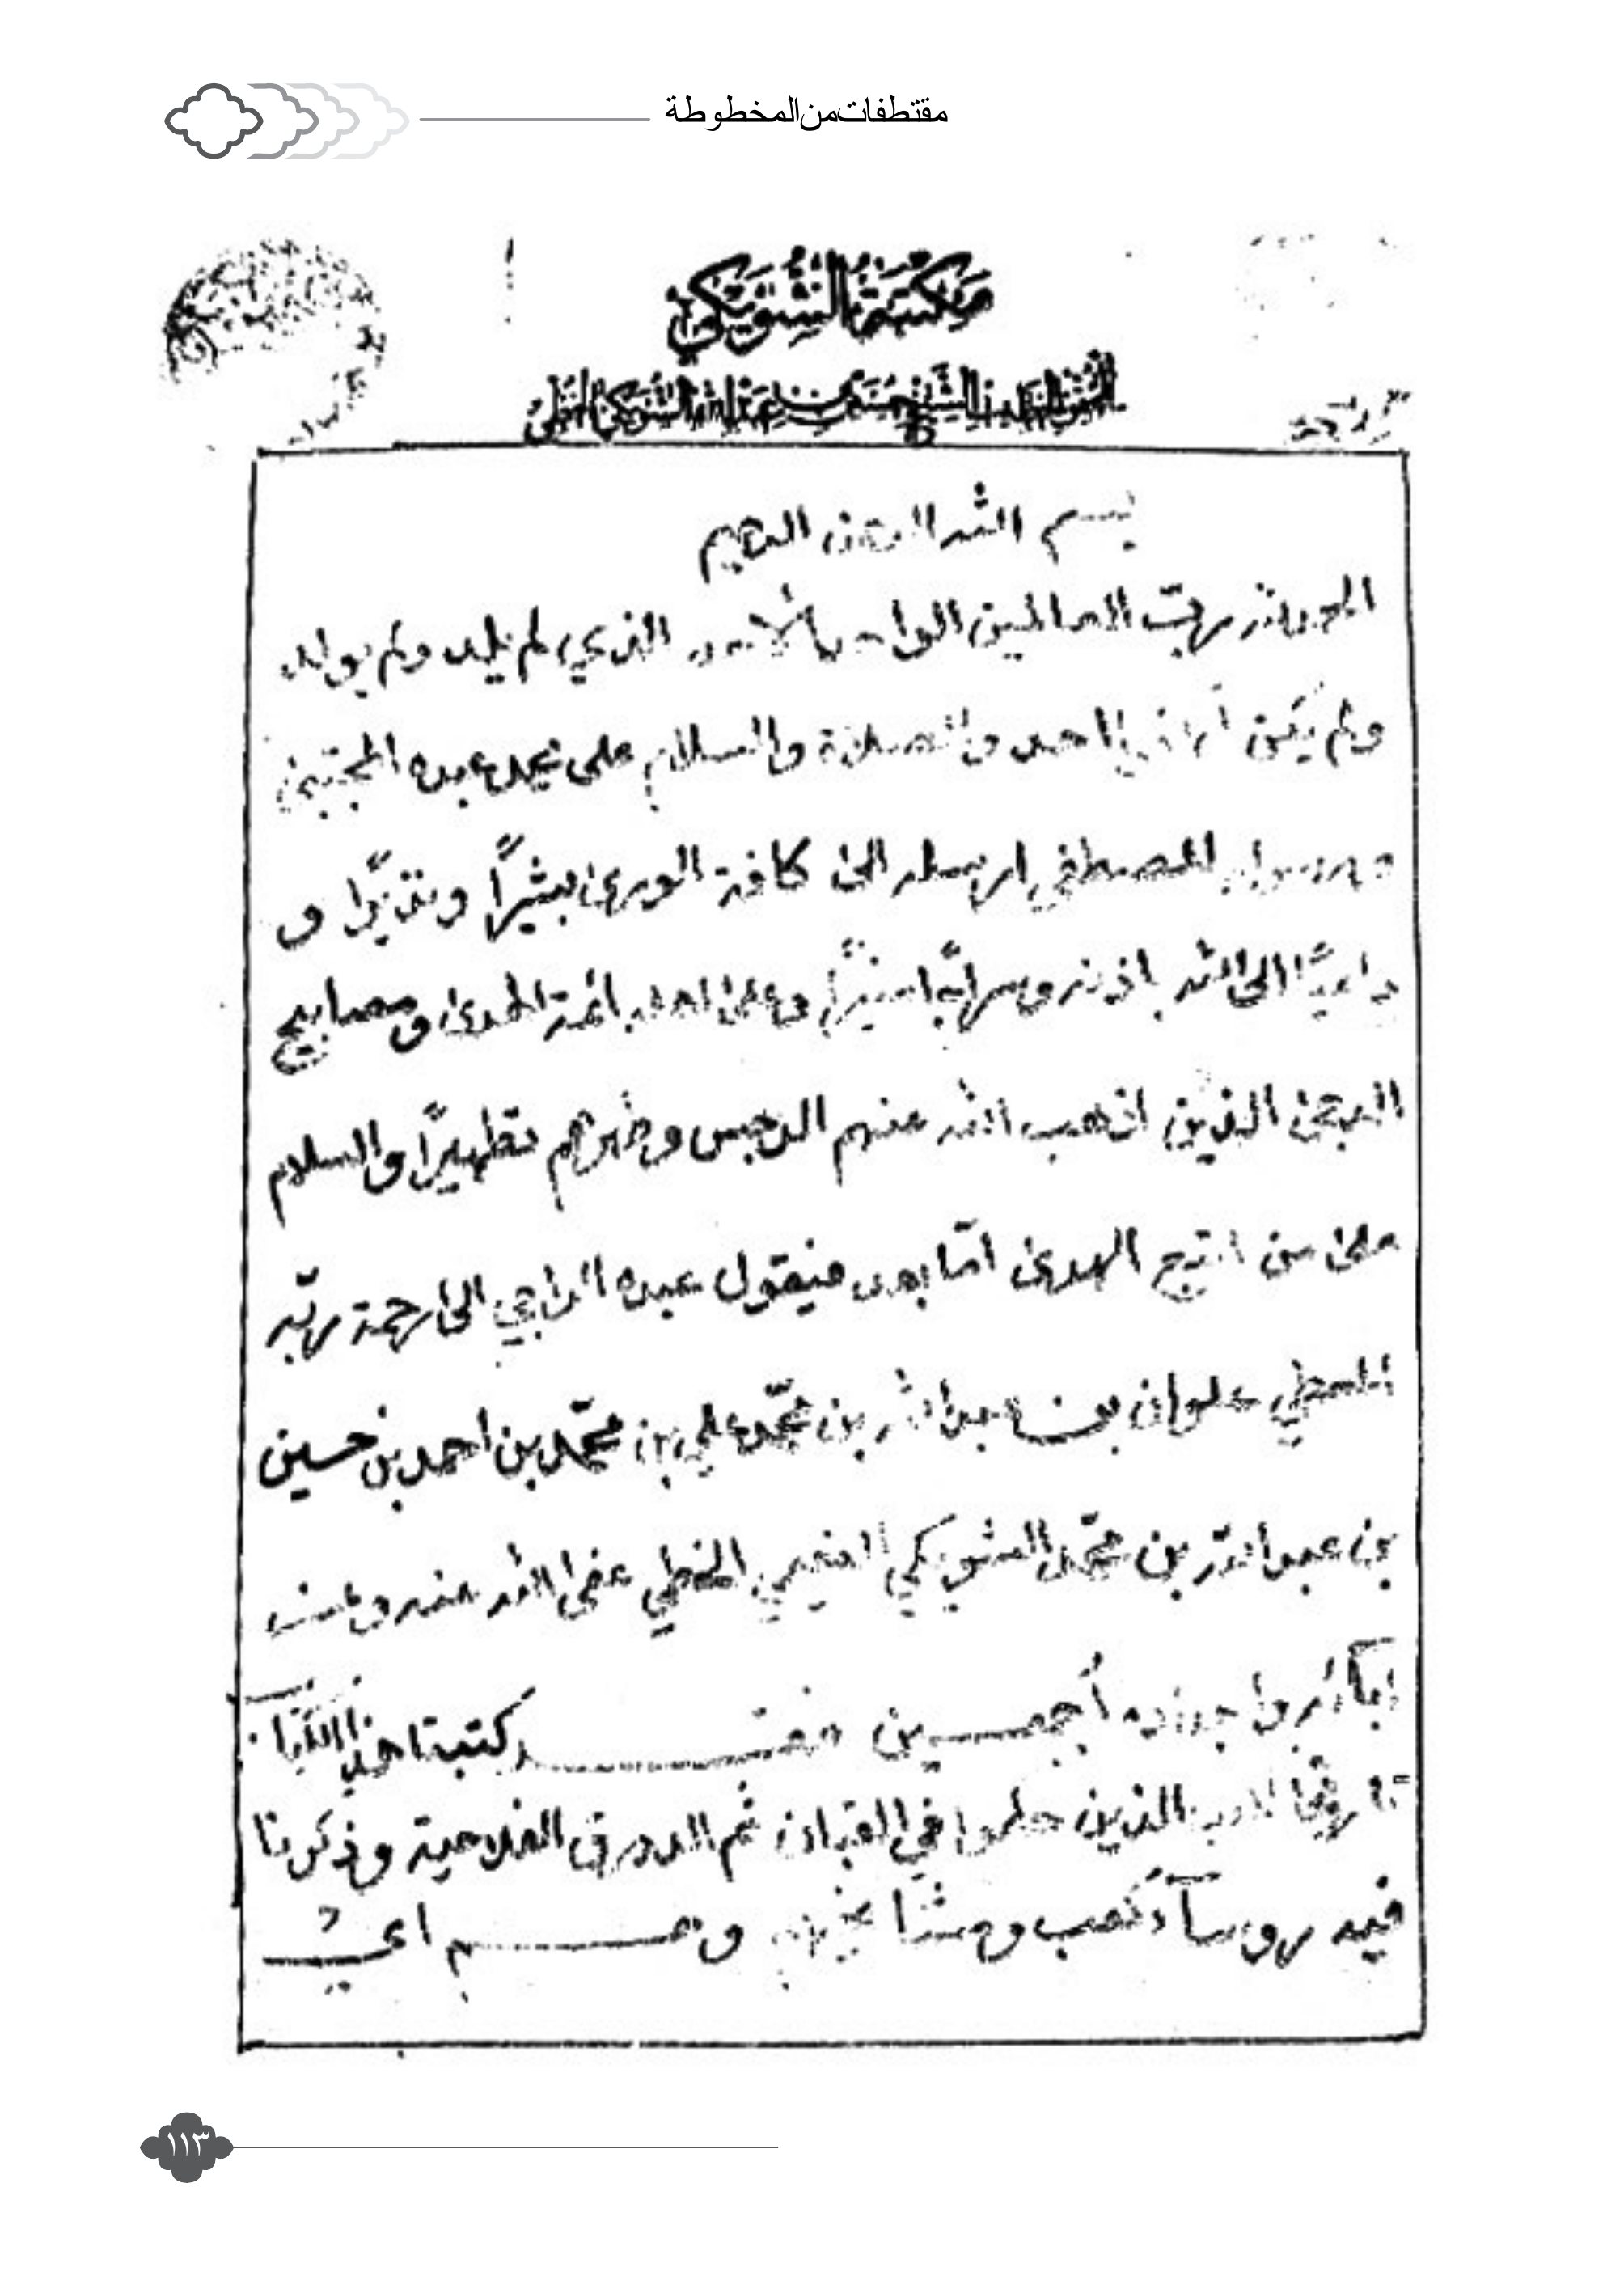 مقتطفات من المخطوطة
مكتبة الشويكي
الشيخ حسن بن عبد الله الشويكي الخطي
بسم الله الرحمن الرحيم
الحمد لله رب العالمين الواحد الأحد الذي لم يلد ولم يولد
ولم يكن له كفوا احد والصلاة والسلام على محمد عبده المجتبى
ورسوله المصطفى ارسله الى كافة الورى بشيرًا ونذيرًا و
داعيًا الى الله باذنه وسراجًا منيرًا وعلى اله ائمة الهدى ومصابيح
الدجى الذين اذهب الله عنهم الرجس وطهرهم تطهيرًا والسلام
على من اتبع الهدى امّا بعد فيقول عبده الراجي الى رحمة ربّه
المعطي علوان بن عبد الله بن محمّد علي بن محمّد بن احمد بن حسين
بن عبد الله بن محمّد الشويكي النعيمي الخطي عفى الله عنه وعن
ابآئه واجداده أجمعين فقد كتبنا هذا الكتاب
الذين حلموا في القبان ثم الدورق الفلاحية وذكرنا
فيه روسآء كعب ومشائخهم وهم
١١٣